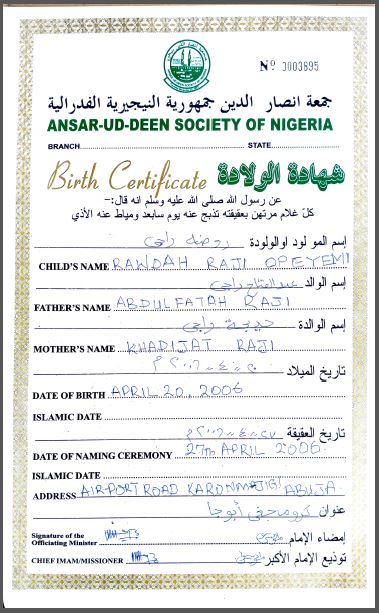 Nº 0003895
جمعة انصار الدين جمهورية النيجيرية الفدرالية
ANSAR-UD-DEEN SOCIETY OF NIGERIA
BRANCH STATE
Birth Certificate شهادة الولادة
عن رسول الله صلى الله عليه وسلم انه قال:-
كل غلام مرتهن بعقيقته تذبج عنه يوم سابعد ومياط عنه الأذي
إسم المولود اوالولودة روضة راجي
CHILD'S NAME RAWDAH RAJI OPEYEMI
إسم الوالد عبدالفتاح راجي
FATHER'S NAME ABDULFATAH RAJI
إسم الوالدة خديجة راجي
MOTHER'S NAME KHADIJAT RAJI
تاريخ الميلاد
DATE OF BIRTH APRIL 20, 2006
ISLAMIC DATE
تاريخ العقيقة
DATE OF NAMING CEREMONY 27th APRIL 2006
ISLAMIC DATE
ADDRESS AIRPORT ROAD KARONMAJIGI ABUJA
عنوان كرونماجغي أبوجا
إمضاء الإمام
Signature of the
Officiating Minister
CHIEF IMAM/MISSIONER توذيع الإمام الأكبر